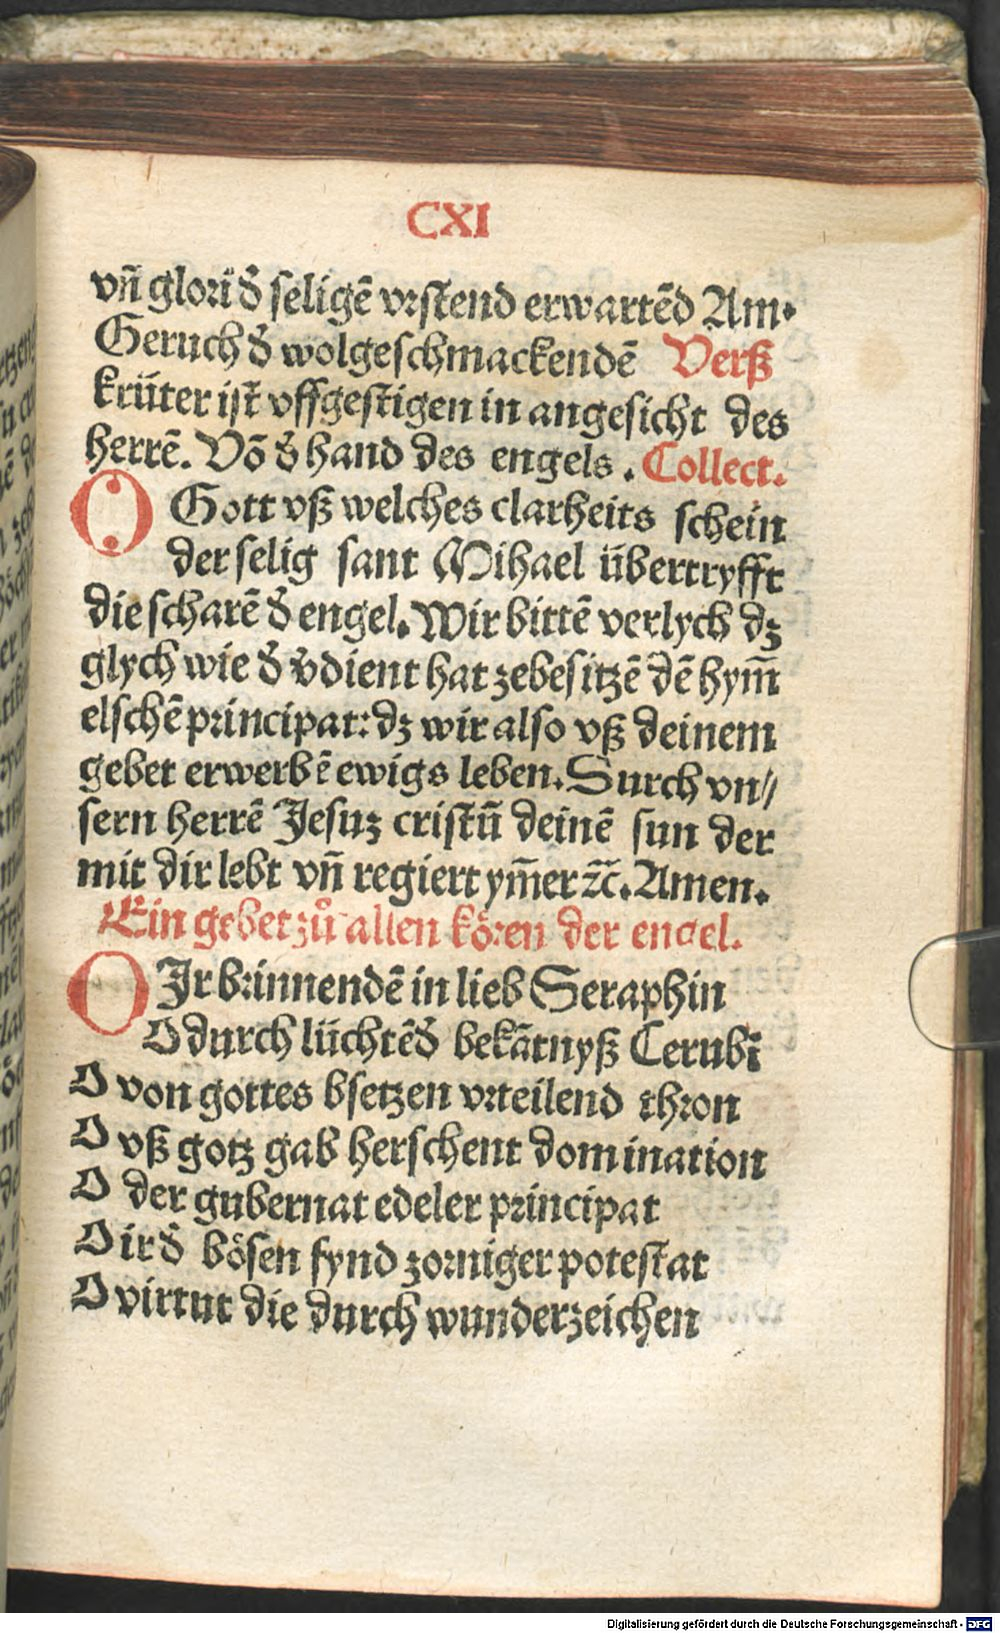 CXI
vn̄ glori d̕ seligē vrstend erwartēd Am.
Geruch d̕ wolgeschmackendē Verß
krüter ist vffgestigen in angesicht des
herrē. Võ d̕ hand des engels. Collect.
O Gott vß welches clarheits schein
der selig sant Mihael übertryfft
die scharē d̕ engel. Wir bittē verlych dz
glych wie d̕ v̕dient hat zebesitzē dē hym̄
elschē principat: dz wir also vß deinem
gebet erwerbē ewigs leben. Durch vn//
sern herrē Jesuz cristū deinē sun der
mit dir lebt vn̄ regiert ym̄er ꝛc̄. Amen.
Ein gebet zů allen kören der engel.
O Ir brinnendē in lieb Seraphin
O durch lüchtēd̕ bekātnyß Cerubī
O von gottes bsetzen vrteilend thron
O vß gotz gab herschent domination
O der gubernat edeler principat
O ir d̕ bösen fynd zorniger potestat
O virtut die durch wunderzeichen
Digitalisierung gefördert durch die Deutsche Forschungsgemeinschaft - DFG